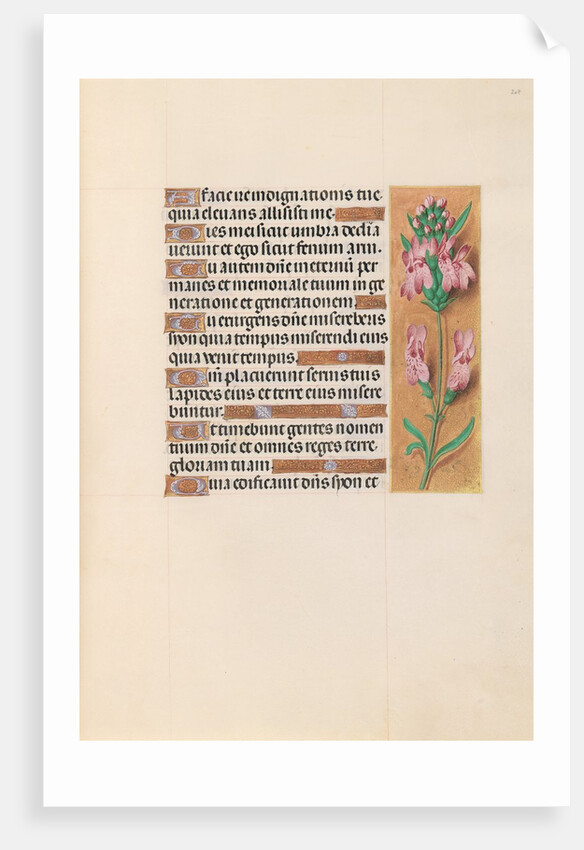 A facie ire indignationis tue
quia elevans allisisti me.
Dies mei sicut umbra decli͂a
verunt et ego sicut fenum arui.
Tu autem dn͂e in eternu͂ per
manes et memoriale tuum in ge
neratione et generationem
Tu exurgens dn͂e misereberis
syon quia tempus miserendi eius
quia venit tempus.
Qm͂ placuerunt servis tuis
lapides eius et terre eius misere
buntur.
Et timebunt gentes nomen
tuum dn͂e et omnes reges terre
gloriam tuam.
Quia edificavit dn͂s syon et